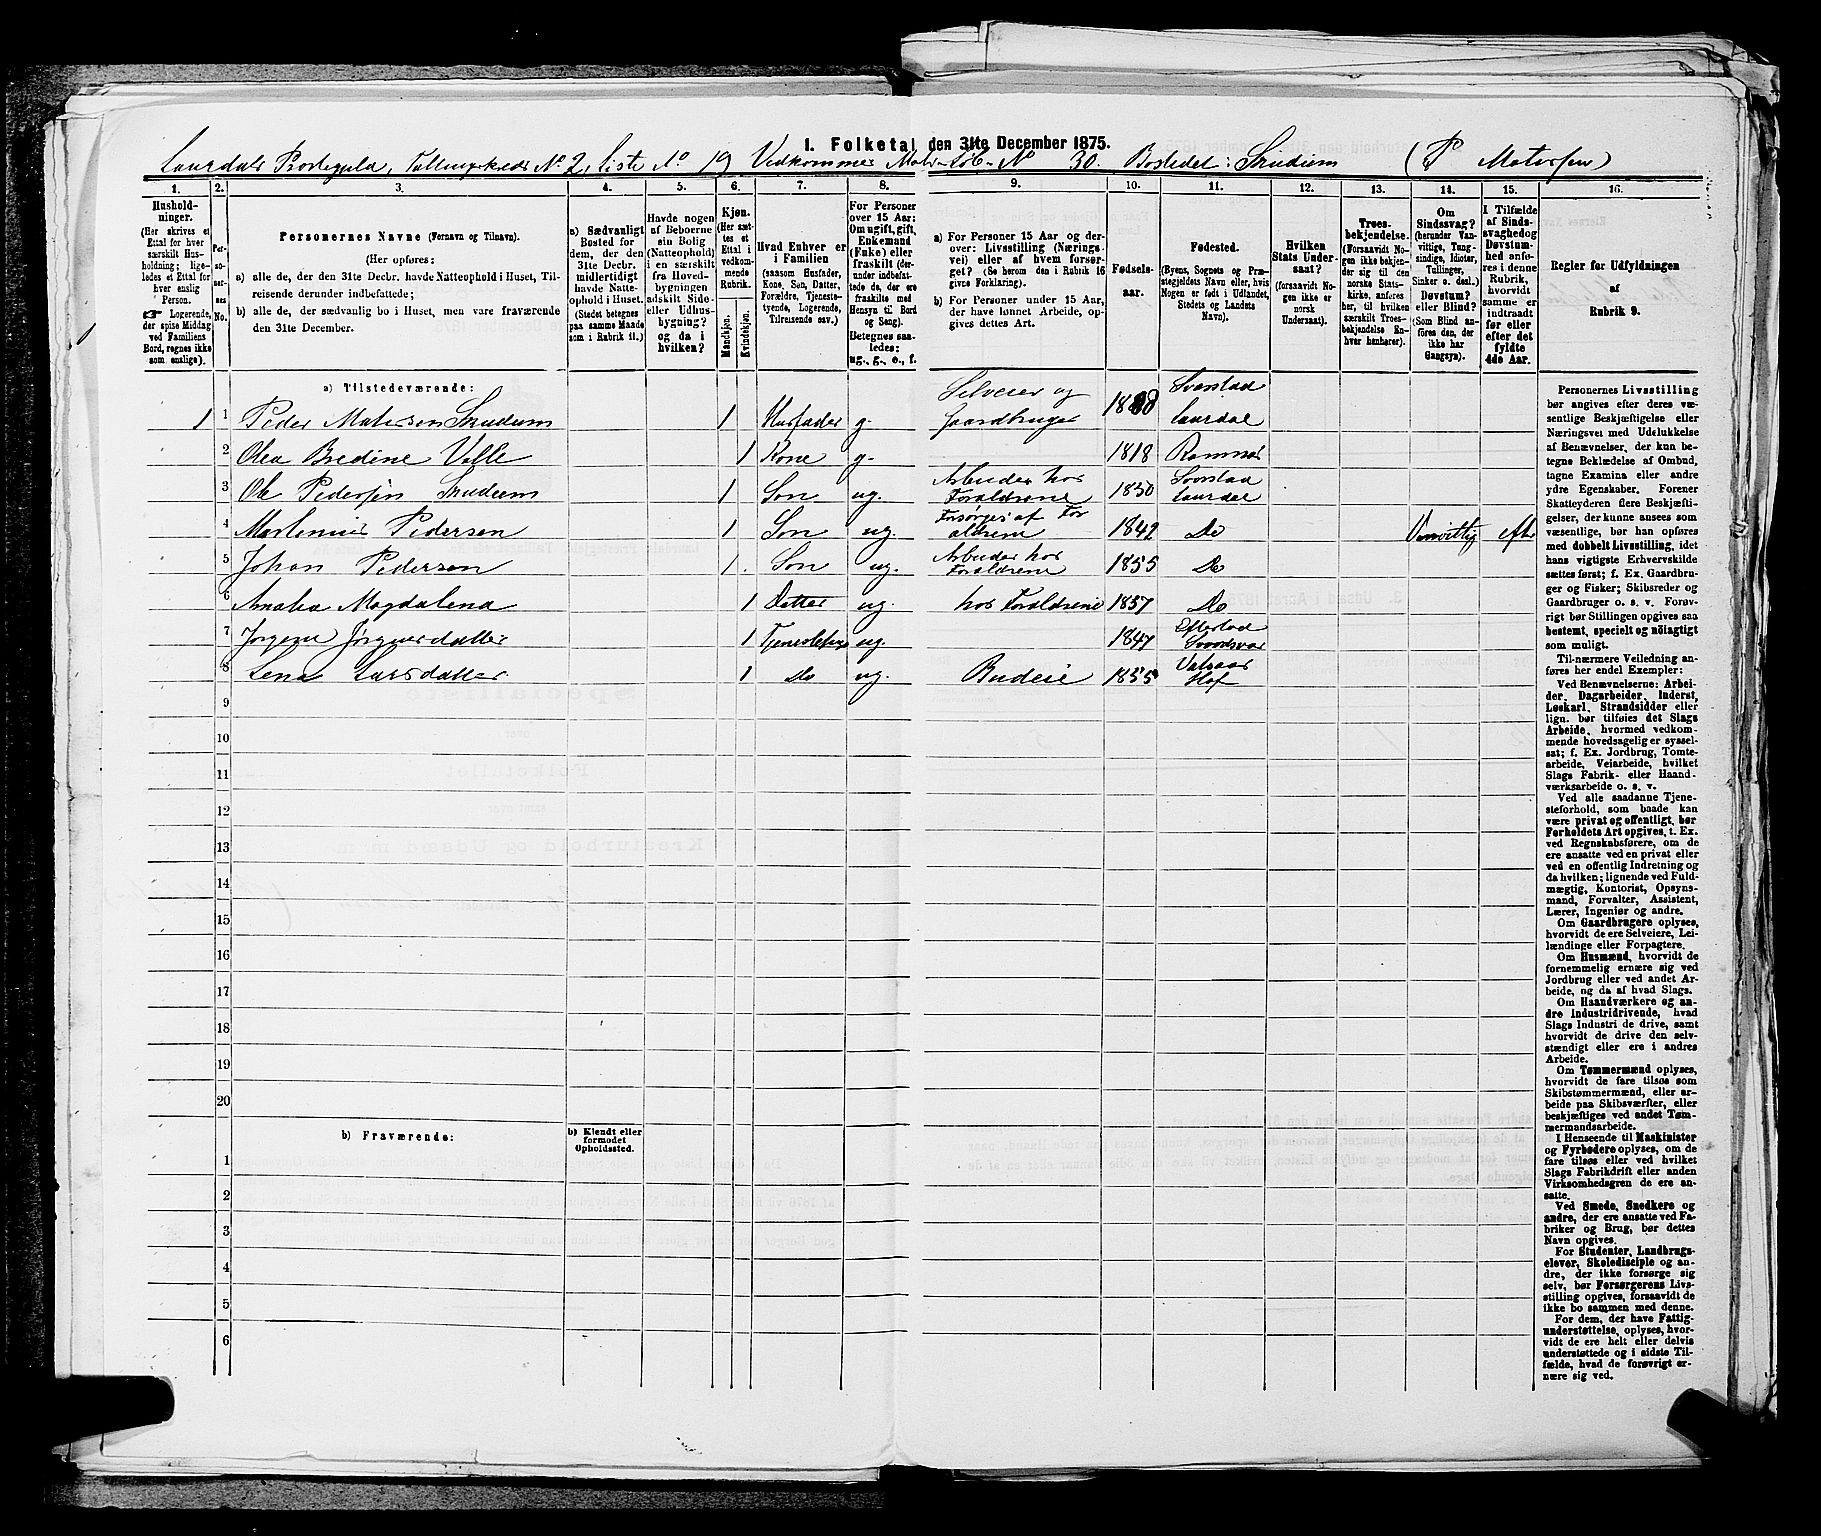 I. Folketal den 31te December 1875.
Laurdals Præstegjeld, Tællingskreds No 2, Liste No 19 Vedkommer Matr. Løb. No 30. Bostedet: Skudem (P Matisen)
1. 2. 3. 4. 5. 6. 7. 8. 9. 10. 11. 12. 13. 14. 15. 16.
Hushold-
ninger.
(Her skrives et
Ettal for hver
særskilt Hus-
holdning; lige-
ledes et Ettal for
hver enslig
Person.
☞ Logerende,
der spise Middag
ved Familiens
Bord, regnes ikke
som enslige).
Per-
so-
ner-
nes
No.
Personernes Navne (Fornavn og Tilnavn).
(Her opføres:
a) alle de, der den 31te Decbr. havde Natteophold i Huset, Til-
reisende derunder indbefattede;
b) alle de, der sædvanlig bo i Huset, men vare fraværende
den 31te December.
a) Sædvanligt
Bosted for
dem, der den
31te Decbr.
midlertidigt
havde Natte-
ophold i Huset.
(Stedet betegnes
paa samme Maade
som i Rubrik 11.)
Havde nogen
af Beboerne
sin Bolig
(Natteophold)
i en særskilt
fra Hoved-
bygningen
adskilt Side-
eller Udhus-
bygning?
og da i
hvilken?
Kjøn.
(Her sæt-
tes et
Ettal i
vedkom-
mende
Rubrik.
Mandkjøn.
Kvindekjøn.
Hvad Enhver er
i Familien
(saasom Husfader,
Kone, Søn, Datter,
Forældre, Tjeneste-
tyende, Logerende,
Tilreisende osv.)
For Personer
over 15 Aar:
Om ugift, gift,
Enkemand
(Enke) eller
fraskilt (der-
under indbefat-
tede de, der ere
fraskilte med
Hensyn til Bord
og Seng).
Betegnes saa-
ledes:
ug., g., e., f.
a) For Personer 15 Aar og der-
over: Livsstilling (Nærings-
vei) eller af hvem forsør-
get? (Se herom den i Rubrik 16
givne Forklaring).
b) For Personer under 15 Aar,
der have lønnet Arbeide, op-
gives dettes Art.
Fødsels-
aar.
Fødested.
(Byens, Sognets og Præ-
stegjeldets Navn eller, hvis
Nogen er født i Udlandet,
Stedets og Landets
Navn).
Hvilken
Stats Under-
saat?
(forsaavidt No-
gen ikke er
norsk
Undersaat).
Troes-
bekjendelse.
(Forsaavidt No-
gen ikke bekjen-
der sig til den
norske Stats-
kirke, anføres
her, til hvilken
særskilt Troes-
bekjendelse En-
hver henhører).
Om
Sindssvag?
(herunder Van-
vittige, Tung-
sindige, Idioter,
Tullinger,
Sinker o. desl.)
Døvstum?
eller Blind?
(Som Blind an-
føres den, der
ikke har
Gangsyn).
I Tilfælde
af Sinds-
svaghed og
Døvstum-
hed anfø-
res i denne
Rubrik,
hvorvidt
samme er
indtraadt
før eller
efter det
fyldte
4de Aar.
Regler for Udfyldningen
af
Rubrik 9.
a) Tilstedeværende:
1 1 Peder Matisen Skudem 1 Husfader g. Selveier og Gaardbruger Svarstad Laurdal
2 Olea Bredine Valle 1 Kone g. 1818 Ramnæs
3 Ole Pedersen Skudem 1 Søn ug. Arbeider hos Forældrene 1850 Svarstad Laurdal
4 Marthinius Pedersen 1 Søn ug. Forsørges af Forældrene 1849 Do Vanvittig efter
5 Johan Pedersen 1. Søn ug. Arbeider hos Forældrene 1855 Do
6 Amalia Magdalena 1 Datter ug. hos Forældrene 1857 Do
7 Jørgine Jørgensdatter 1 ug. 1847
8 Lena Larsdatter 1 Do ug. Budeie 1855 Hof
9
10
11
12
13
14
15
16
17
18
19
20
b) Fraværende:
b) Kjendt eller
formodet
Opholdssted.
1
2
3
4
5
6
Personernes Livsstilling
bør angives efter deres væ-
sentlige Beskjæftigelse eller
Næringsvei med Udelukkelse
af Benævnelser, der kun be-
tegne Beklædelse af Ombud,
tagne Examina eller andre
ydre Egenskaber. Forener
Skatteyderen flere Beskjæfti-
gelser, der kunne ansees som
væsentlige, bør han opføres
med dobbelt Livsstilling, idet
hans vigtigste Erhvervskilde
sættes først; f. Ex. Gaardbru-
ger og Fisker; Skibsreder og
Gaardbruger o. s. v. Forøv-
rigt bør Stillingen opgives saa
bestemt, specielt og nøiagtigt
som muligt.
Til-nærmere Veiledning an-
føres her endel Exempler:
Ved Benævnelserne: Arbei-
der, Dagarbeider, Inderst,
Løskarl, Strandsidder eller
lign. bør tilføies det Slags
Arbeide, hvormed vedkom-
mende hovedsagelig er syssel-
sat; f. Ex. Jordbrug, Tomte-
arbeide, Veiarbeide, hvilket
Slags Fabrik- eller Haand-
værksarbeide o. s. v.
Ved alle saadanne Tjene-
steforhold, som baade kan
være privat og offentligt, bør
Forholdets Art opgives, t. Ex.
ved Regnskabsførere, om de
ere ansatte ved en privat eller
ved en offentlig Indretning og
da hvilken; lignende ved Fuld-
mægtig, Kontorist, Opsyns-
mand, Forvalter, Assistent,
Lærer, Ingeniør og andre.
Om Gaardbrugere oplyses,
hvorvidt de ere Selveiere, Lei-
lændinge eller Forpagtere.
Om Husmænd, hvorvidt de
fornemmelig ernære sig ved
Jordbrug eller ved andet Ar-
beide, og da af hvad Slags.
Om Haandværkere og an-
dre Industridrivende, hvad
Slags Industri de drive, samt
hvorvidt de drive den selv-
stændigt eller ere i andres
Arbeide.
Om Tømmermænd oplyses,
hvorvidt de fare tilsøs som
Skibstømmermænd, eller ar-
beide paa Skibsværfter, eller
beskjæftiges ved andet Tøm-
mermandsarbeide.
I Henseende til Maskinister
og Fyrbødere oplyses, om de
fare tilsøs eller ved hvilket
Slags Fabrikdrift eller anden
Virksomhedsgren de ere an-
satte.
Ved Smede, Snedkere og
andre, der ere ansatte ved Fa-
briker og Brug, bør dettes
Navn opgives.
For Studenter, Landbrugs-
elever, Skoledisciple og an-
dre, der ikke forsørge sig
selv, bør Forsørgerens Livs-
stilling opgives, forsaavidt de
ikke bo sammen med denne.
For dem, der have Fattig-
understøttelse, oplyses, hvor-
vidt de ere helt eller delvis
understøttede og i sidste Til-
fælde, hvad de forøvrigt er-
nære sig ved.